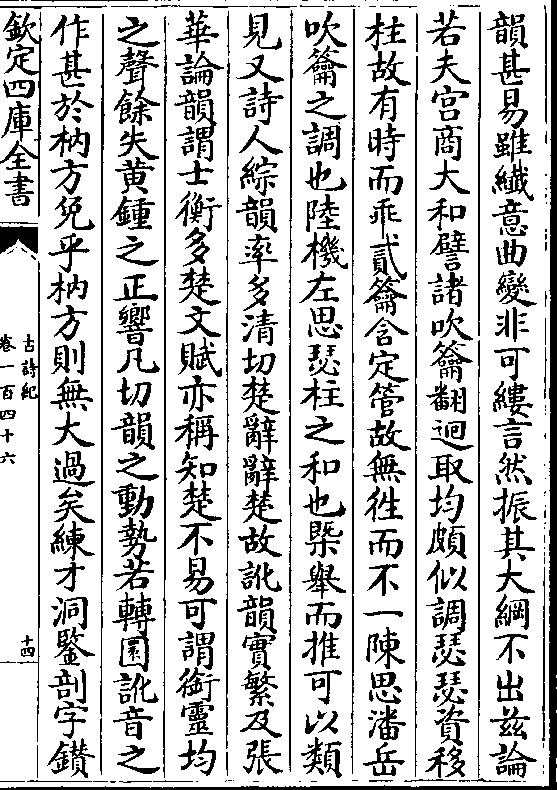 韻甚易雖纖意曲變非可縷言然振其大綱不出兹論
若夫宫商大和譬諸吹籥翻迴取均頗似調瑟瑟資移
柱故有時而乖貳籥含定管故無徃而不一陳思潘岳
吹籥之調也陸機左思瑟柱之和也槩舉而推可以類
見又詩人綜韻率多清切楚辭辭楚故訛韻實繁及張
華論韻謂士衡多楚文賦亦稱知楚不易可謂銜靈均
之聲餘失黄鍾之正響凡切韻之動勢若轉圜訛音之
作甚於枘方免乎枘方則無大過矣練才洞鑒剖字鑚
欽定四庫全書
古詩紀
卷一百四十六
十四